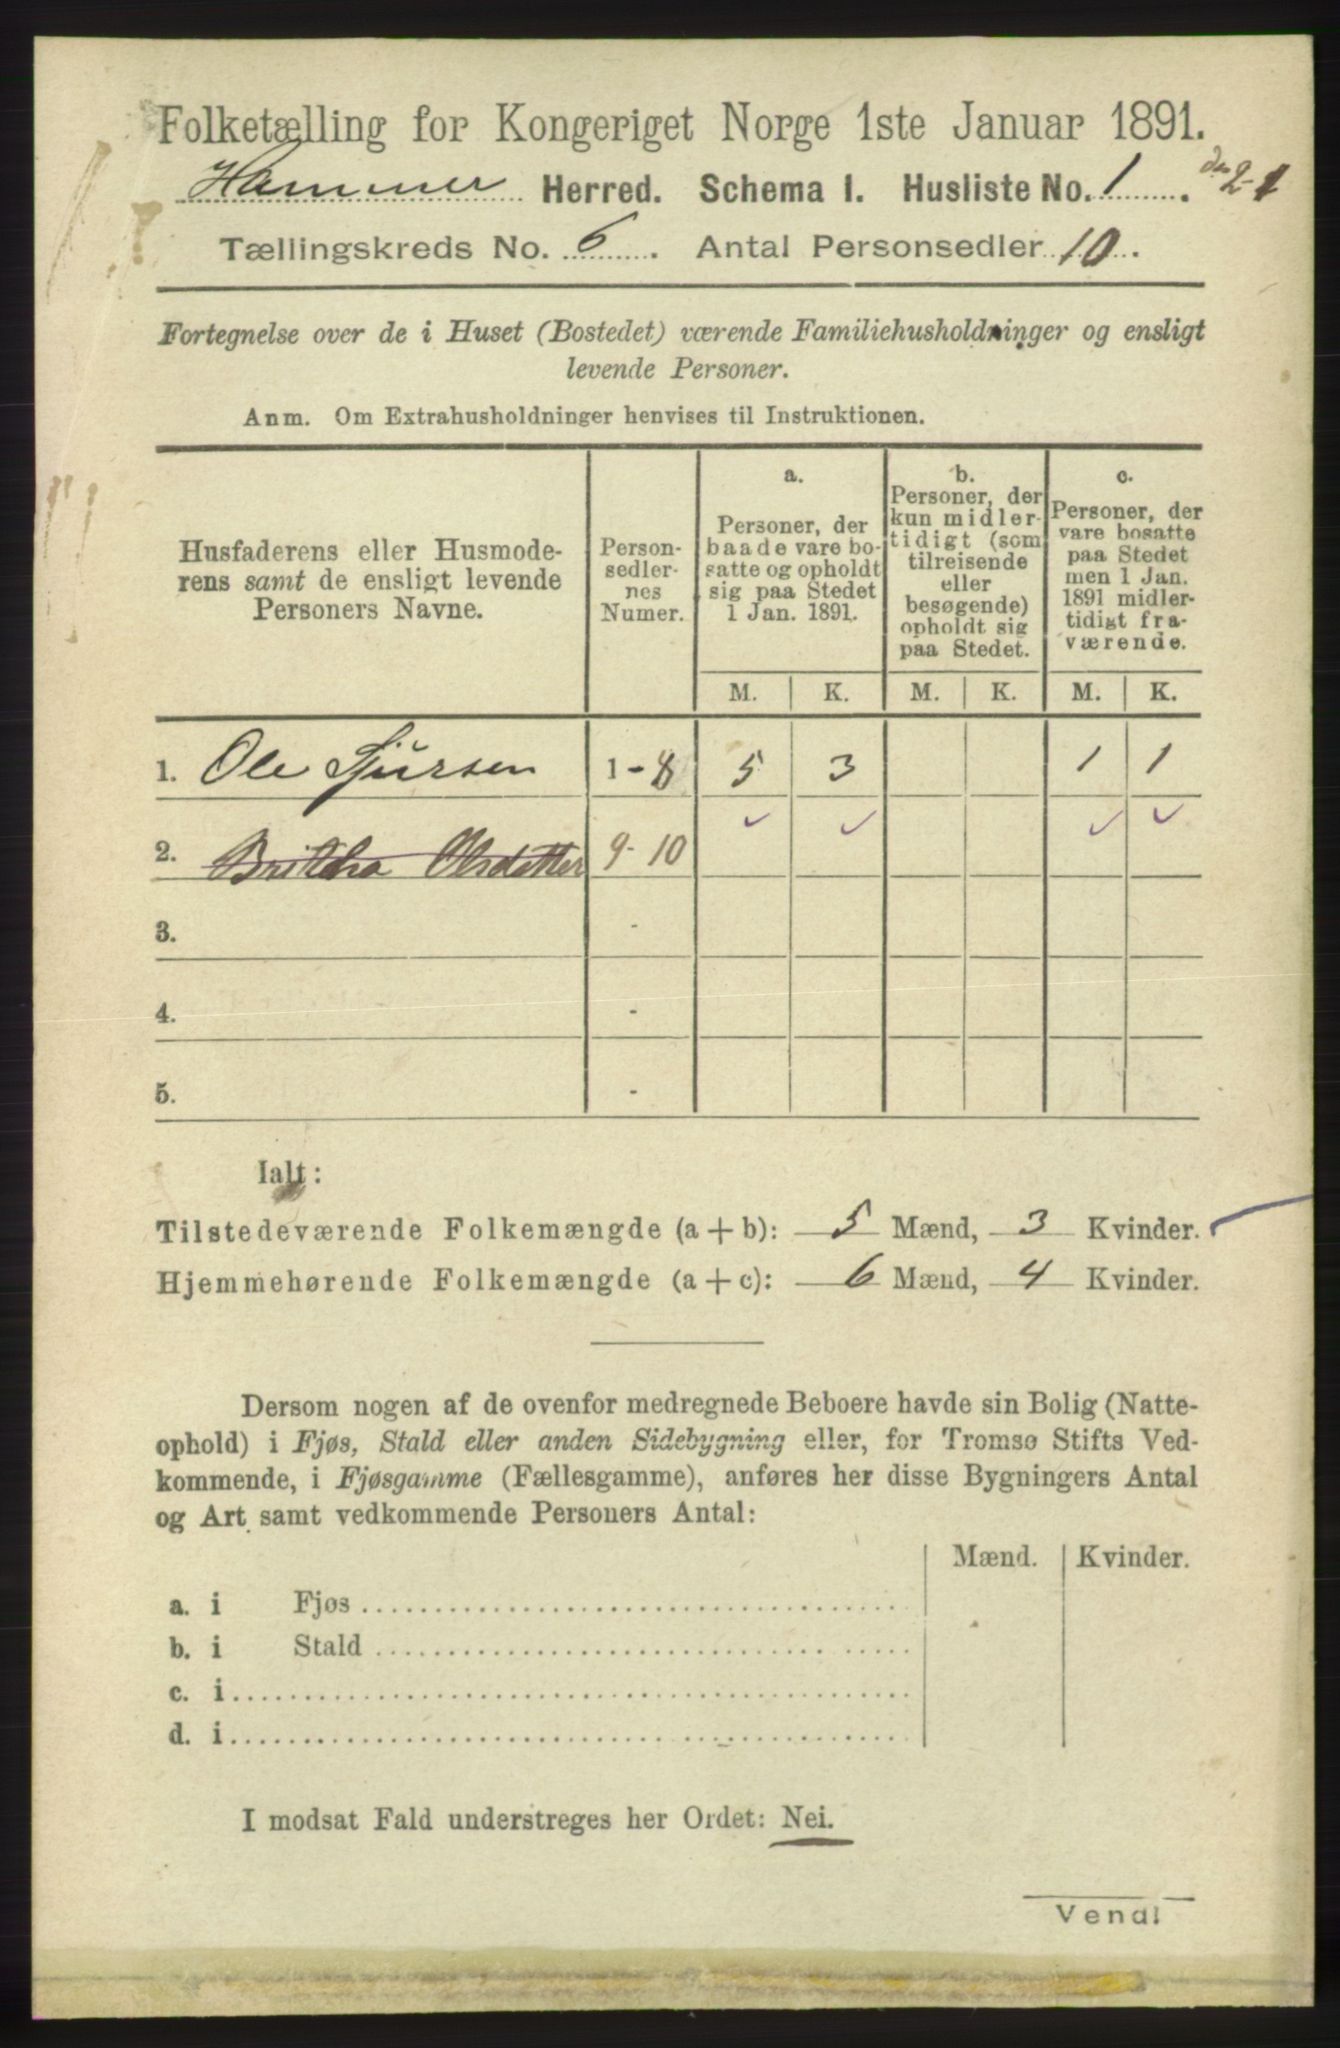 Folketælling for Kongeriget Norge 1ste Januar 1891.
Hammer Herred. Schema I. Husliste No. 1. 2-1
Tællingskreds No. 6. Antal Personsedler 10.
Fortegnelse over de i Huset (Bostedet) værende Familiehusholdninger og ensligt
levende Personer.
Anm. Om Extrahusholdninger henvises til Instruktionen.
Husfaderens eller Husmode-
rens samt de ensligt levende
Personers Navne.
Person-
sedler-
nes
Numer.
a.
Personer, der
baade vare bo-
satte og opholdt
sig paa Stedet
1 Jan. 1891.
b.
Personer, der
kun midler-
tidigt (som
tilreisende
eller
besøgende)
opholdt sig
paa Stedet.
c.
Personer, der
vare bosatte
paa Stedet
men 1 Jan.
1891 midler-
tidigt fra-
værende.
M. K. M. K. M. K.
1. Ole Sjursen 1-8 5 3 1 1
2. Brittha Olsdatter 9-10 ✓ ✓ ✓ ✓
3. -
4. -
5. -
Ialt:
Tilstedeværende Folkemængde (a + b): 5 Mænd, 3 Kvinder.
Hjemmehørende Folkemængde (a + c): 6 Mænd, 4 Kvinder.
Dersom nogen af de ovenfor medregnede Beboere havde sin Bolig (Natte-
ophold) i Fjøs, Stald eller anden Sidebygning eller, for Tromsø Stifts Ved-
kommende, i Fjøsgamme (Fællesgamme), anføres her disse Bygningers Antal
og Art samt vedkommende Personers Antal:
Mænd. Kvinder.
a. i Fjøs
b. i Stald
c. i
d. i
I modsat Fald understreges her Ordet: Nei.
Vend!